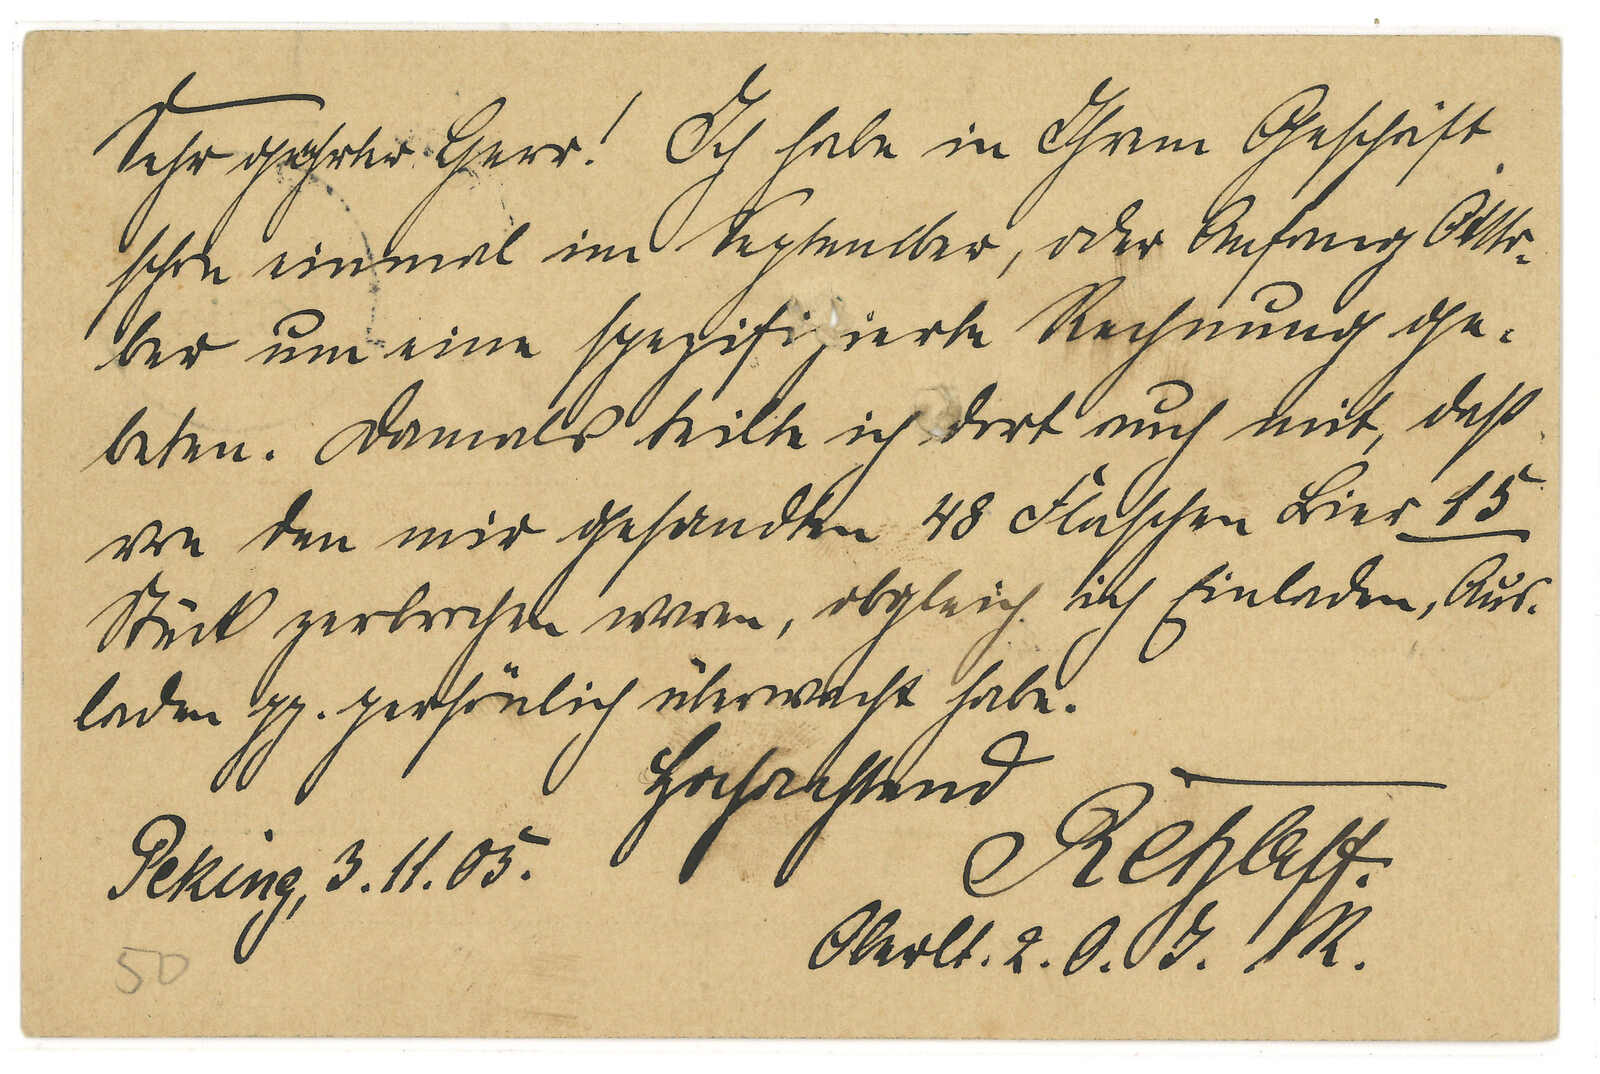 Sehr geehrter Herr! Ich habe in Ihrem Geschäft
schon einmal im September, oder Anfang Okto-
ber um eine spezifizierte Rechnung ge-
beten. Damals teilte ich dort auch mit, daß
von den mir gesandten 48 Flaschen Bier 15
Stück zerbrochen waren, obgleich ich Einladen, Aus-
laden pp. persönlich überwacht habe.
Hochachtend
Peking, 3.11.05.
Retzlaff.
Oberlt. 2. O. I. R.
50